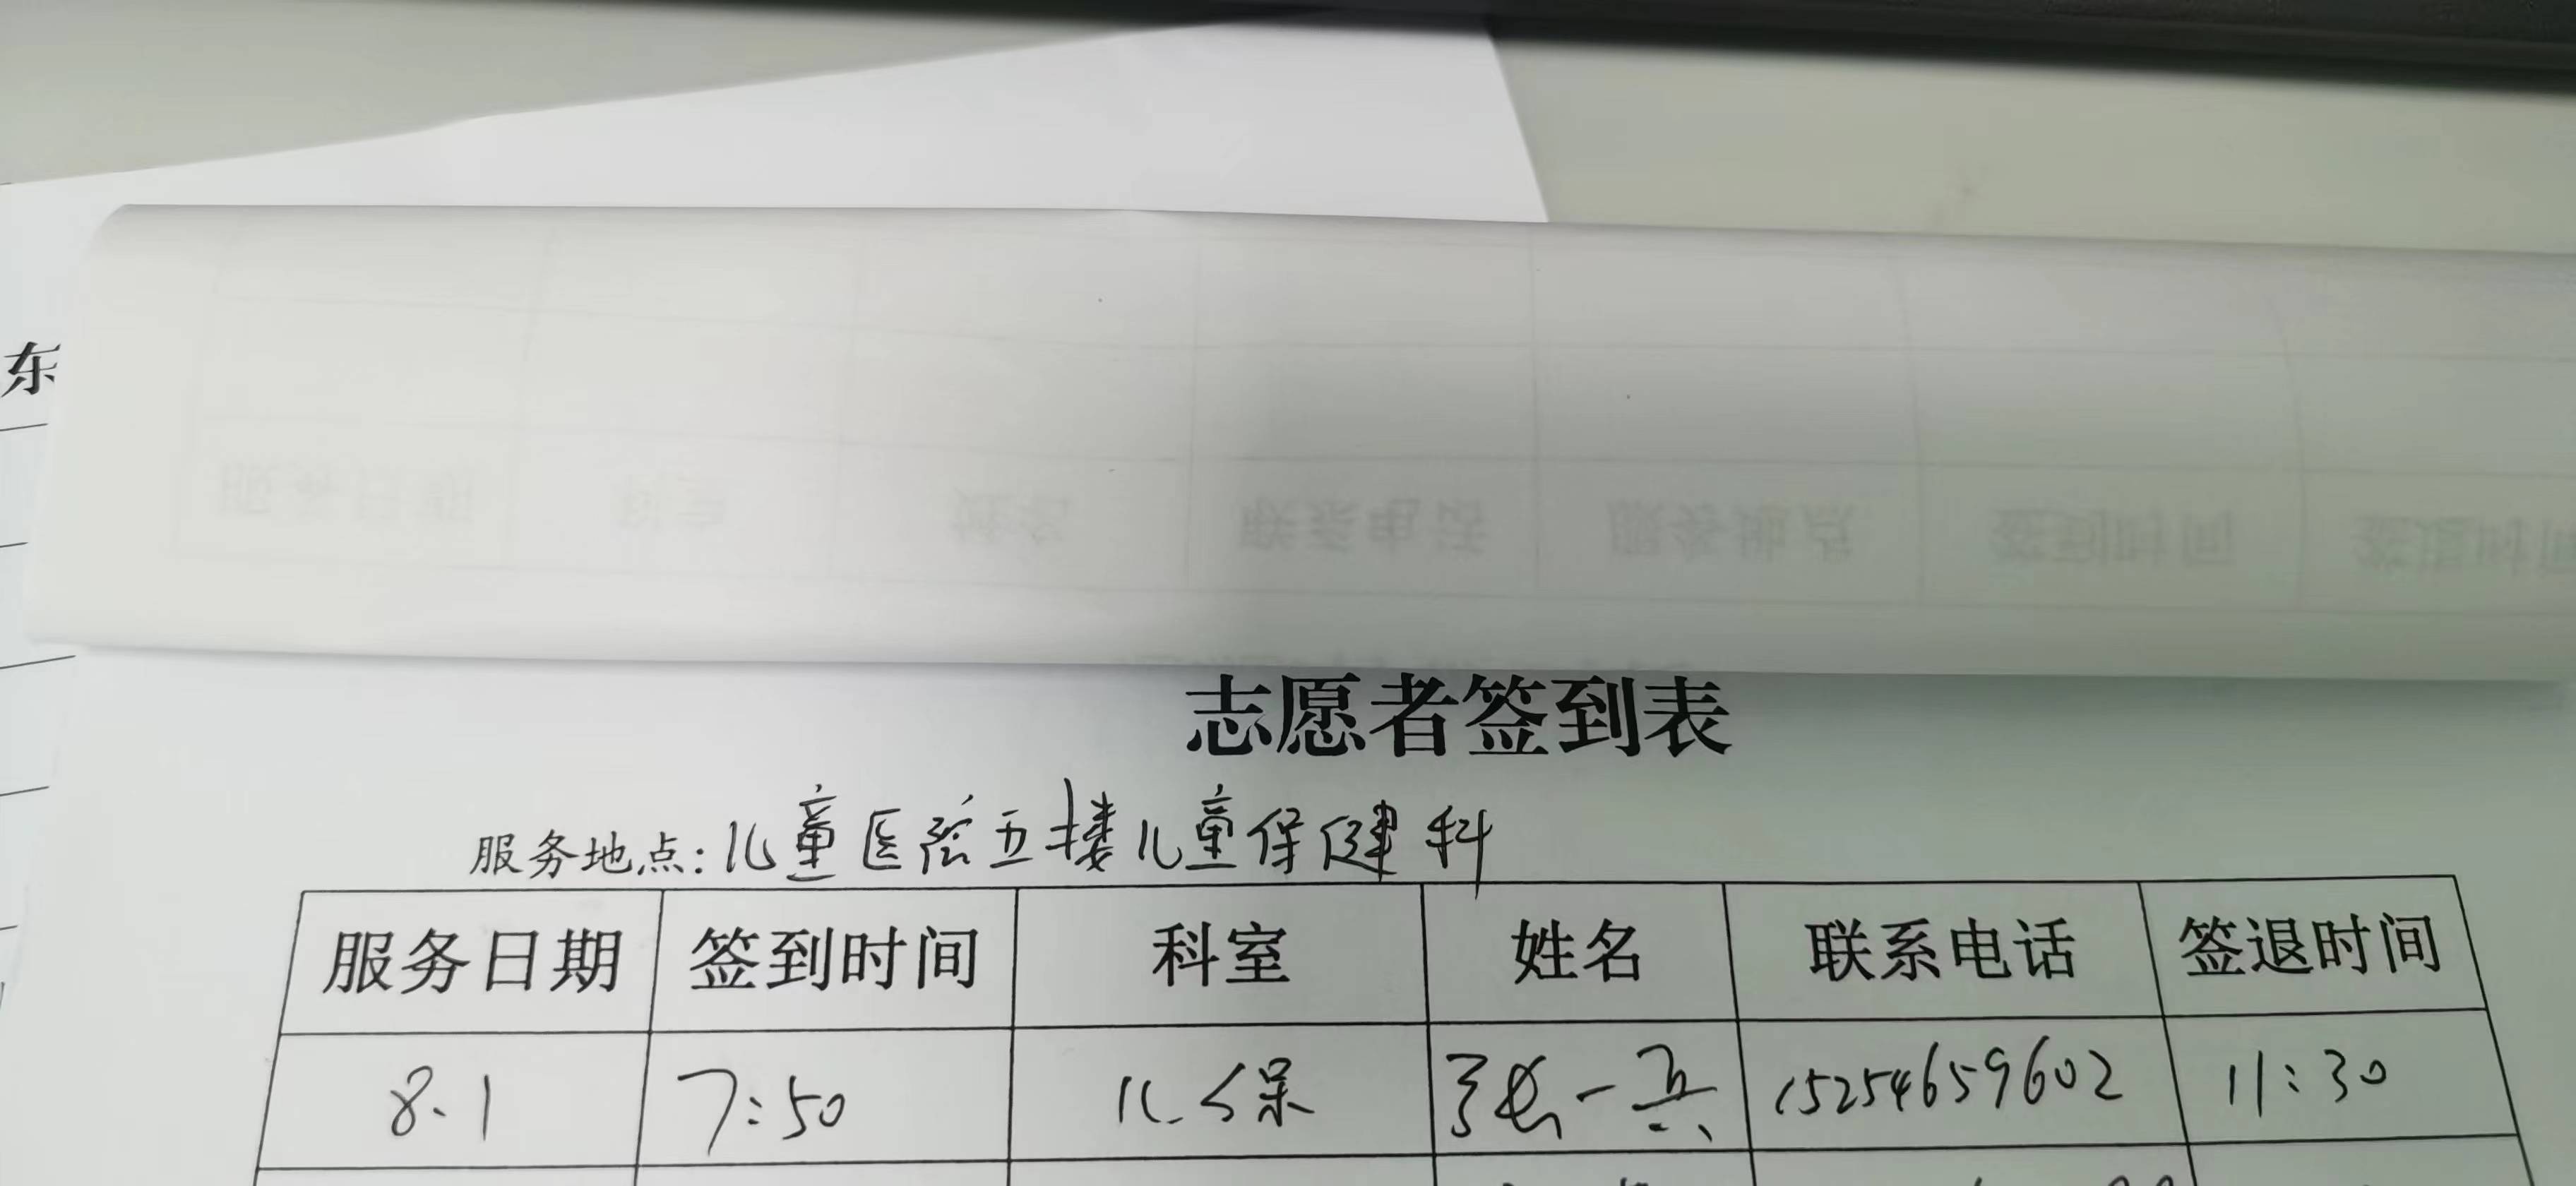 东
志愿者签到表
服务地点: 儿童医院五楼儿童保健科
服务日期 签到时间 科室 姓名 联系电话 签退时间
8.1 7:50 儿保 张一兵 15254659602 11:30